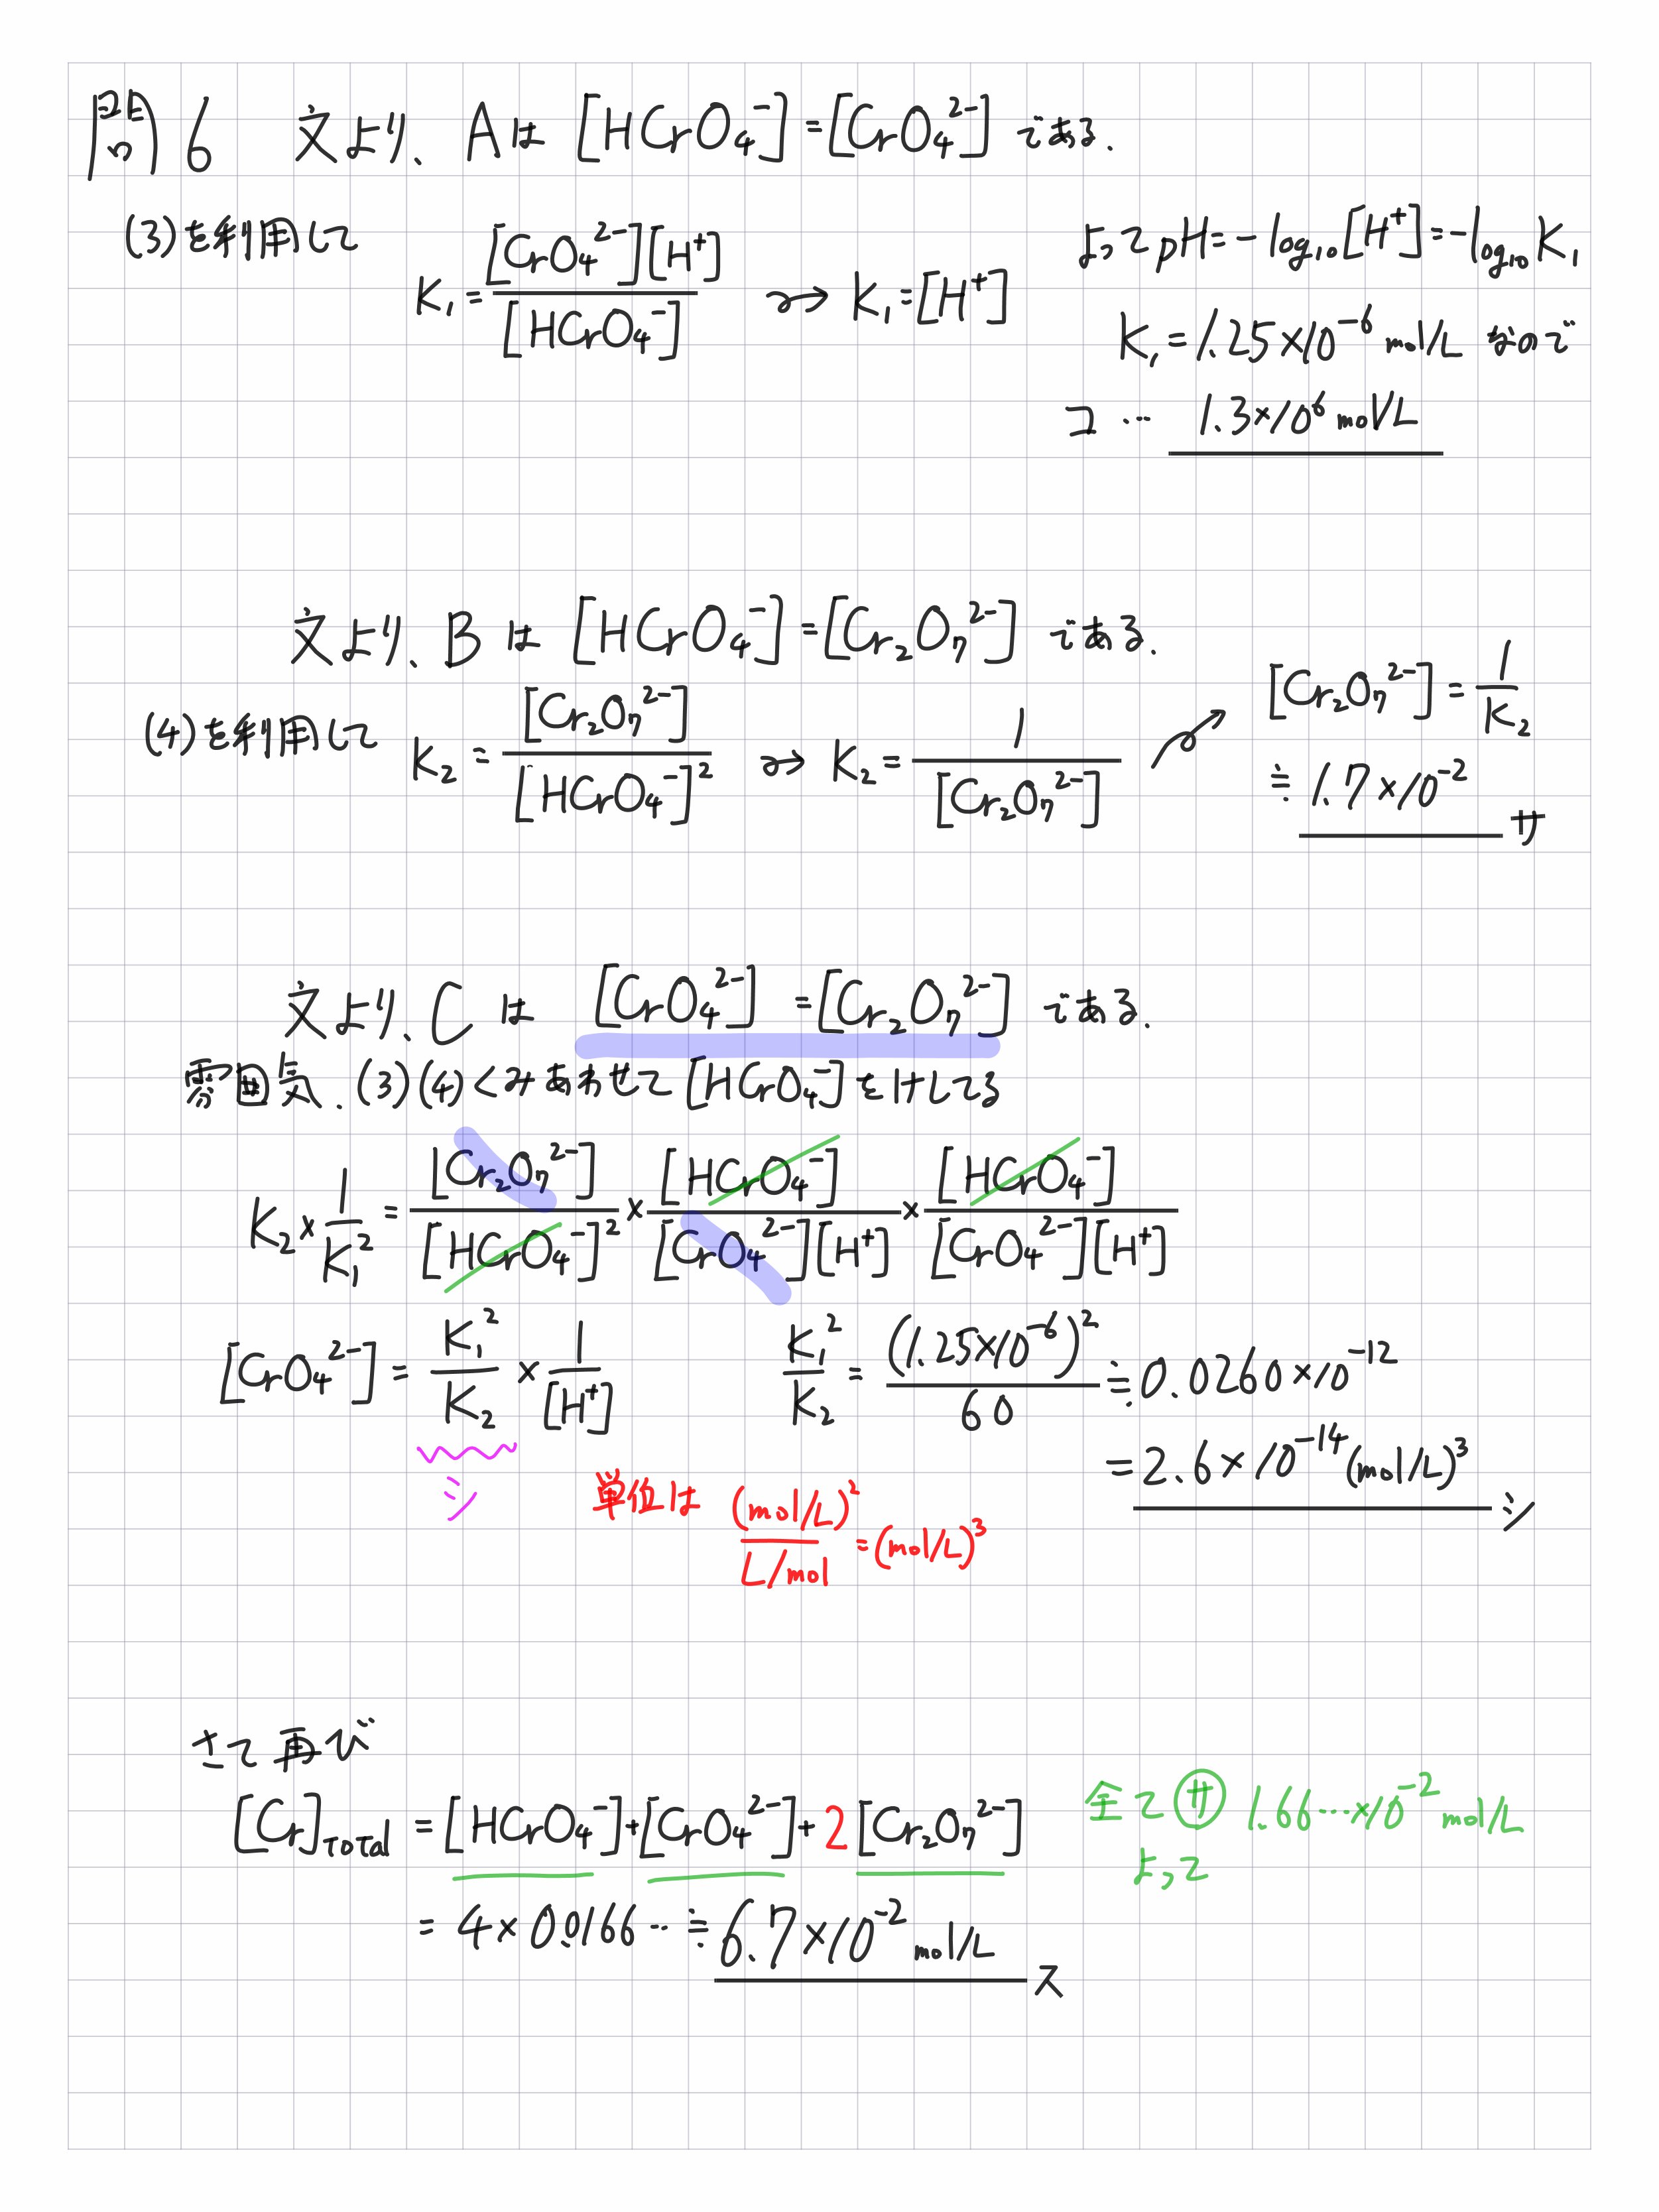 問6 文より、Aは [HCrO₄⁻]=[CrO₄²⁻] である.
(3)を利用して K₁=[CrO₄²⁻][H⁺]/[HCrO₄⁻] → K₁=[H⁺] よって pH=-log₁₀[H⁺]=-log₁₀K₁
K₁=1.25×10⁻⁶ mol/L なので
コ … 1.3×10⁶ mol/L
文より、Bは [HCrO₄⁻]=[Cr₂O₇²⁻] である.
(4)を利用して K₂=[Cr₂O₇²⁻]/[HCrO₄⁻]² → K₂=1/[Cr₂O₇²⁻] → [Cr₂O₇²⁻]=1/K₂
≒1.7×10⁻² サ
文より、Cは [CrO₄²⁻]=[Cr₂O₇²⁻] である.
雰囲気、(3)(4)くみあわせて[HCrO₄⁻]をけしてる
K₂×1/K₁²=[Cr₂O₇²⁻]/[HCrO₄⁻]²×[HCrO₄⁻]/[CrO₄²⁻][H⁺]×[HCrO₄⁻]/[CrO₄²⁻][H⁺]
[CrO₄²⁻]=K₁²/K₂×1/[H⁺] K₁²/K₂=(1.25×10⁻⁶)²/60≒0.0260×10⁻¹²
シ =2.6×10⁻¹⁴(mol/L)³ シ
単位は (mol/L)²/L/mol=(mol/L)³
さて再び
[Cr]Total=[HCrO₄⁻]+[CrO₄²⁻]+2[Cr₂O₇²⁻] 全てサ 1.66…×10⁻² mol/L
よって
=4×0.0166…≒6.7×10⁻² mol/L ス